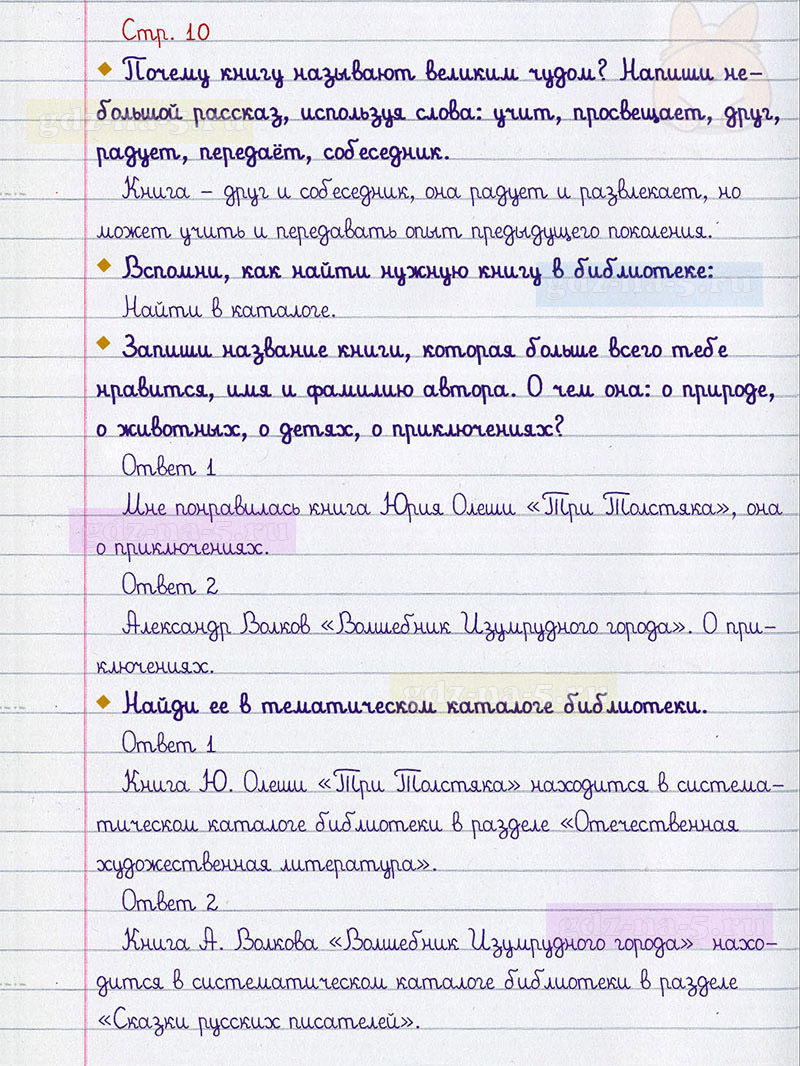 Стр. 10
Почему книгу называют великим чудом? Напиши не-
большой рассказ, используя слова: учит, просвещает, друг,
радует, передаёт, собеседник.
Книга – друг и собеседник, она радует и развлекает, но
может учить и передавать опыт предыдущего поколения.
Вспомни, как найти нужную книгу в библиотеке:
Найти в каталоге.
Запиши название книги, которая больше всего тебе
нравится, имя и фамилию автора. О чем она: о природе,
о животных, о детях, о приключениях?
Ответ 1
Мне понравилась книга Юрия Олеши «Три Толстяка», она
о приключениях.
Ответ 2
Александр Волков «Волшебник Изумрудного города». О при-
ключениях.
Найди ее в тематическом каталоге библиотеки.
Ответ 1
Книга Ю. Олеши «Три Толстяка» находится в система-
тическом каталоге библиотеки в разделе «Отечественная
художественная литература».
Ответ 2
Книга А. Волкова «Волшебник Изумрудного города» нахо-
дится в систематическом каталоге библиотеки в разделе
«Сказки русских писателей».
gdz-na-5.ru
gdz-na-5.ru
gdz-na-5.ru
gdz-na-5.ru
gdz-na-5.ru